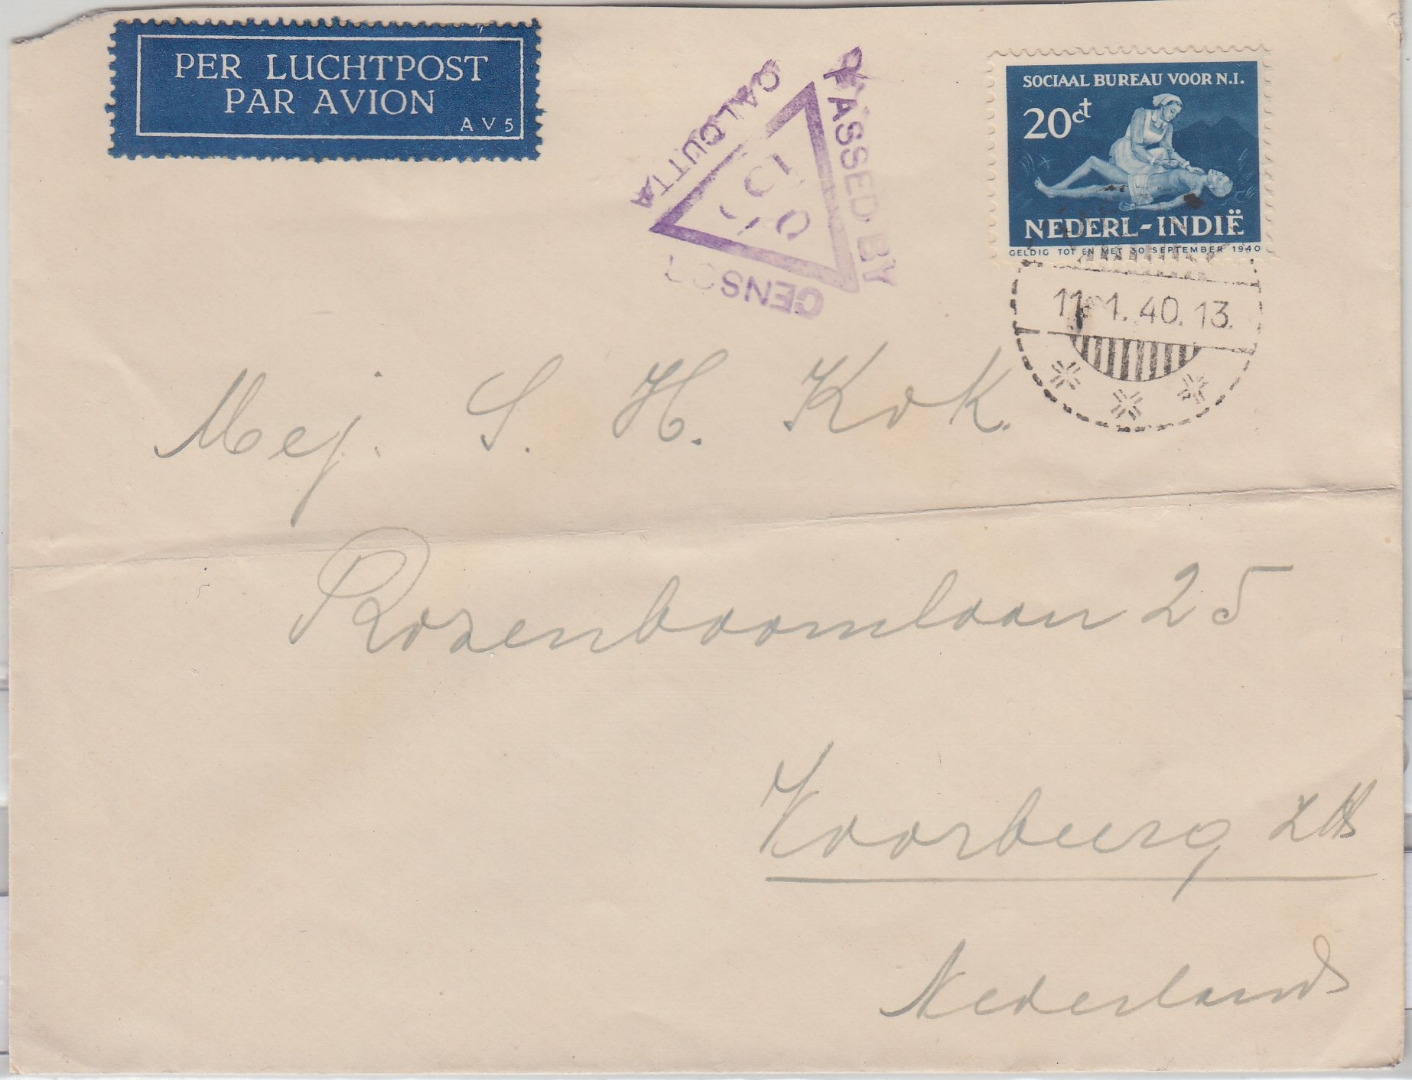 PER LUCHTPOST
PAR AVION
AV5
PASSED BY
CENSOR
CALCUTTA
SOCIAAL BUREAU VOOR N.I.
20ct
NEDERL-INDIË
GELDIG TOT EN MET 30 SEPTEMBER 1940
1.40.13.
Mej. S. H. Kok.
Rozenboomlaan 25
Voorburg ZH
Nederland